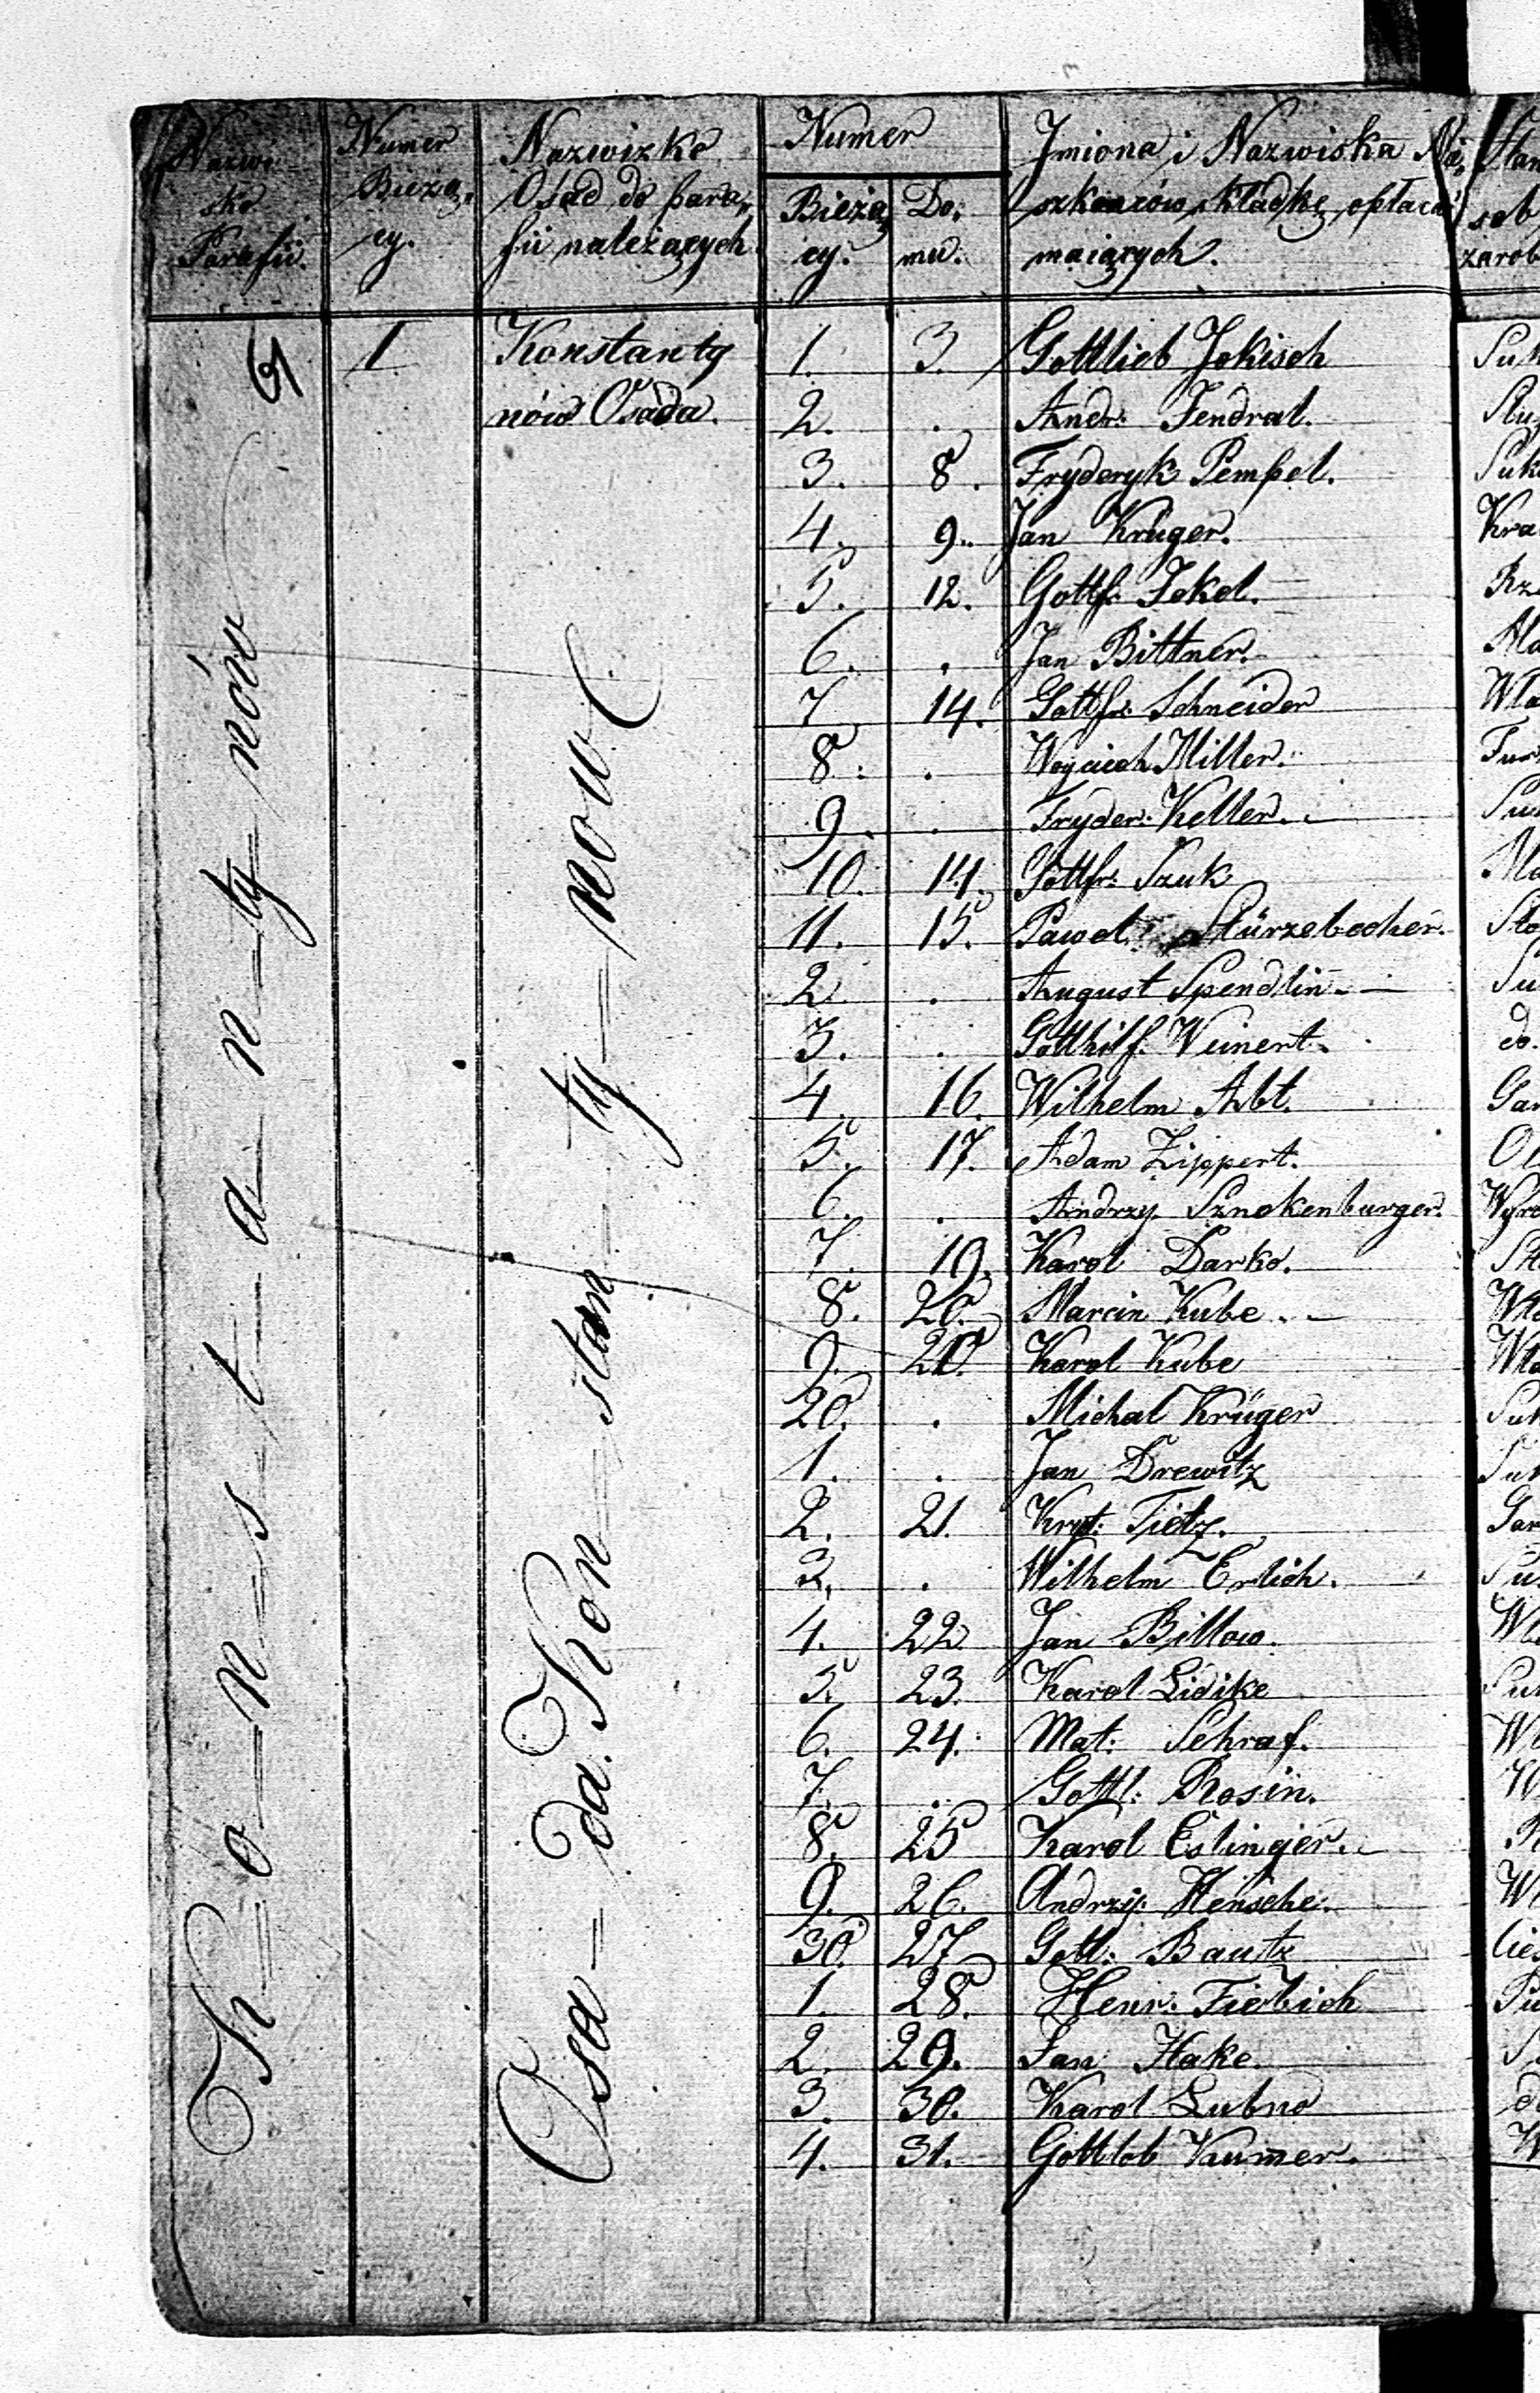 Nazwi-
sko
Parafii.
Numer
Bieżą-
cy.
Nazwizko
Osad do para-
fii należących
Numer
Bieżą
cy.
Do-
mu.
Imiona i Nazwiska
szkańców składkę opłacać
maiących.
K-o-n-s-t-a-n-ty-nów
I
Konstanty
nów Osada.
Osa-da Kon-stan-ty-now
1. 3. Gottlieb Jokisch
2. . Andr: Fendrat.
3. 8. Fryderyk Pempel.
4. 9. Jan Krüger.
5. 12. Gottfr: Jekel.
6. . Jan Bittner.
7 14. Gottfr: Schneider
8. . Woyciech Miller.
9. . Fryder: Keller.
10. 14. Gottfr: Szuk
11. 15. Paweł Stürzebecher.
2 . August Spendlin
3. . Gotthilf Weinert.
4. 16. Wilhelm Abt.
5. 17. Adam Zippert.
6. . Andrzy. Sznekenburger.
7 19. Karol Darko.
8. 20. Marcin Kube
9. Karol Kube
20. . Michał Krüger
1. . Jan Drewitz
2. 21. Kryt: Tietz.
3. . Wilhelm Erlich.
4. 22 Jan Billow.
5. 23. Karol Lidike
6. 24. Mat: Schraf.
7. . Gottl: Rosin.
8. 25 Karol Eslinger.
9. 26. Andrzy: Hensche.
30. 27 Gottl: Bautz
1. 28. Henr: Fiebich
2. 29. Jan Hake.
3. 30. Karol Lubno
4. 31. Gottlob Kumer.